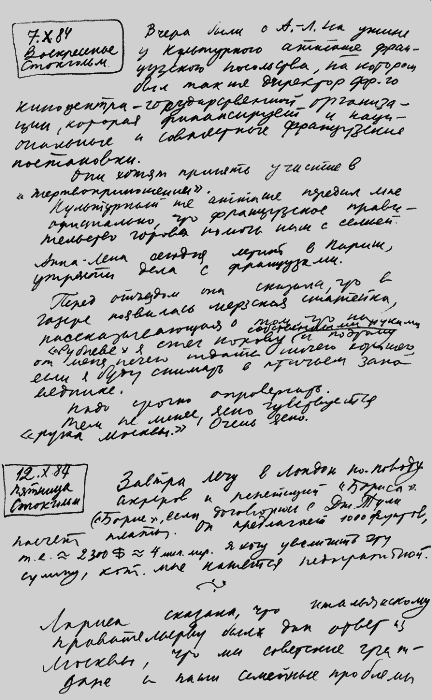 7.X.84
Воскресенье
Стокгольм
Вчера были с А.-Л. на ужине
у культурного атташе фран-
цузского посольства, на котором
был также директор фр-го
киноцентра - государственной организа-
ции, которая финансирует и наци-
ональные и совместные французские
постановки.
Они хотят принять участие в
«Жертвоприношении».
Культурный же атташе передал мне
официально, что французское прави-
тельство готово помочь нам с семьей.
Анна-Лена сегодня летит в Париж,
утрясти дела с французами.
Перед отъездом она сказала, что в
газете появилась мерзкая статейка,
рассказывающая о том, что на
«Рублеве» я сжег корову собственными руками
от меня нечего ждать ничего хорошего
если я буду снимать в птичьем запо-
веднике.
Надо срочно опровергать.
Тем не менее, ясно чувствуется
«рука Москвы.» Очень ясно.
12.X.84
Пятница
Стокгольм
Завтра лечу в Лондон по поводу
актеров и репетиций «Бориса».
(«Борис», если договорюсь с Дж. Тули
насчет платы. Он предлагает 1000 фунтов,
т.е. ≈ 2300 $ ≈ 4 мил. лир. Я хочу увеличить эту
сумму, кот. мне кажется недопустимой.
Лариса сказала, что итальянскому
правительству был дан ответ из
Москвы, что мы советские граж-
дане и наши семейные проблемы